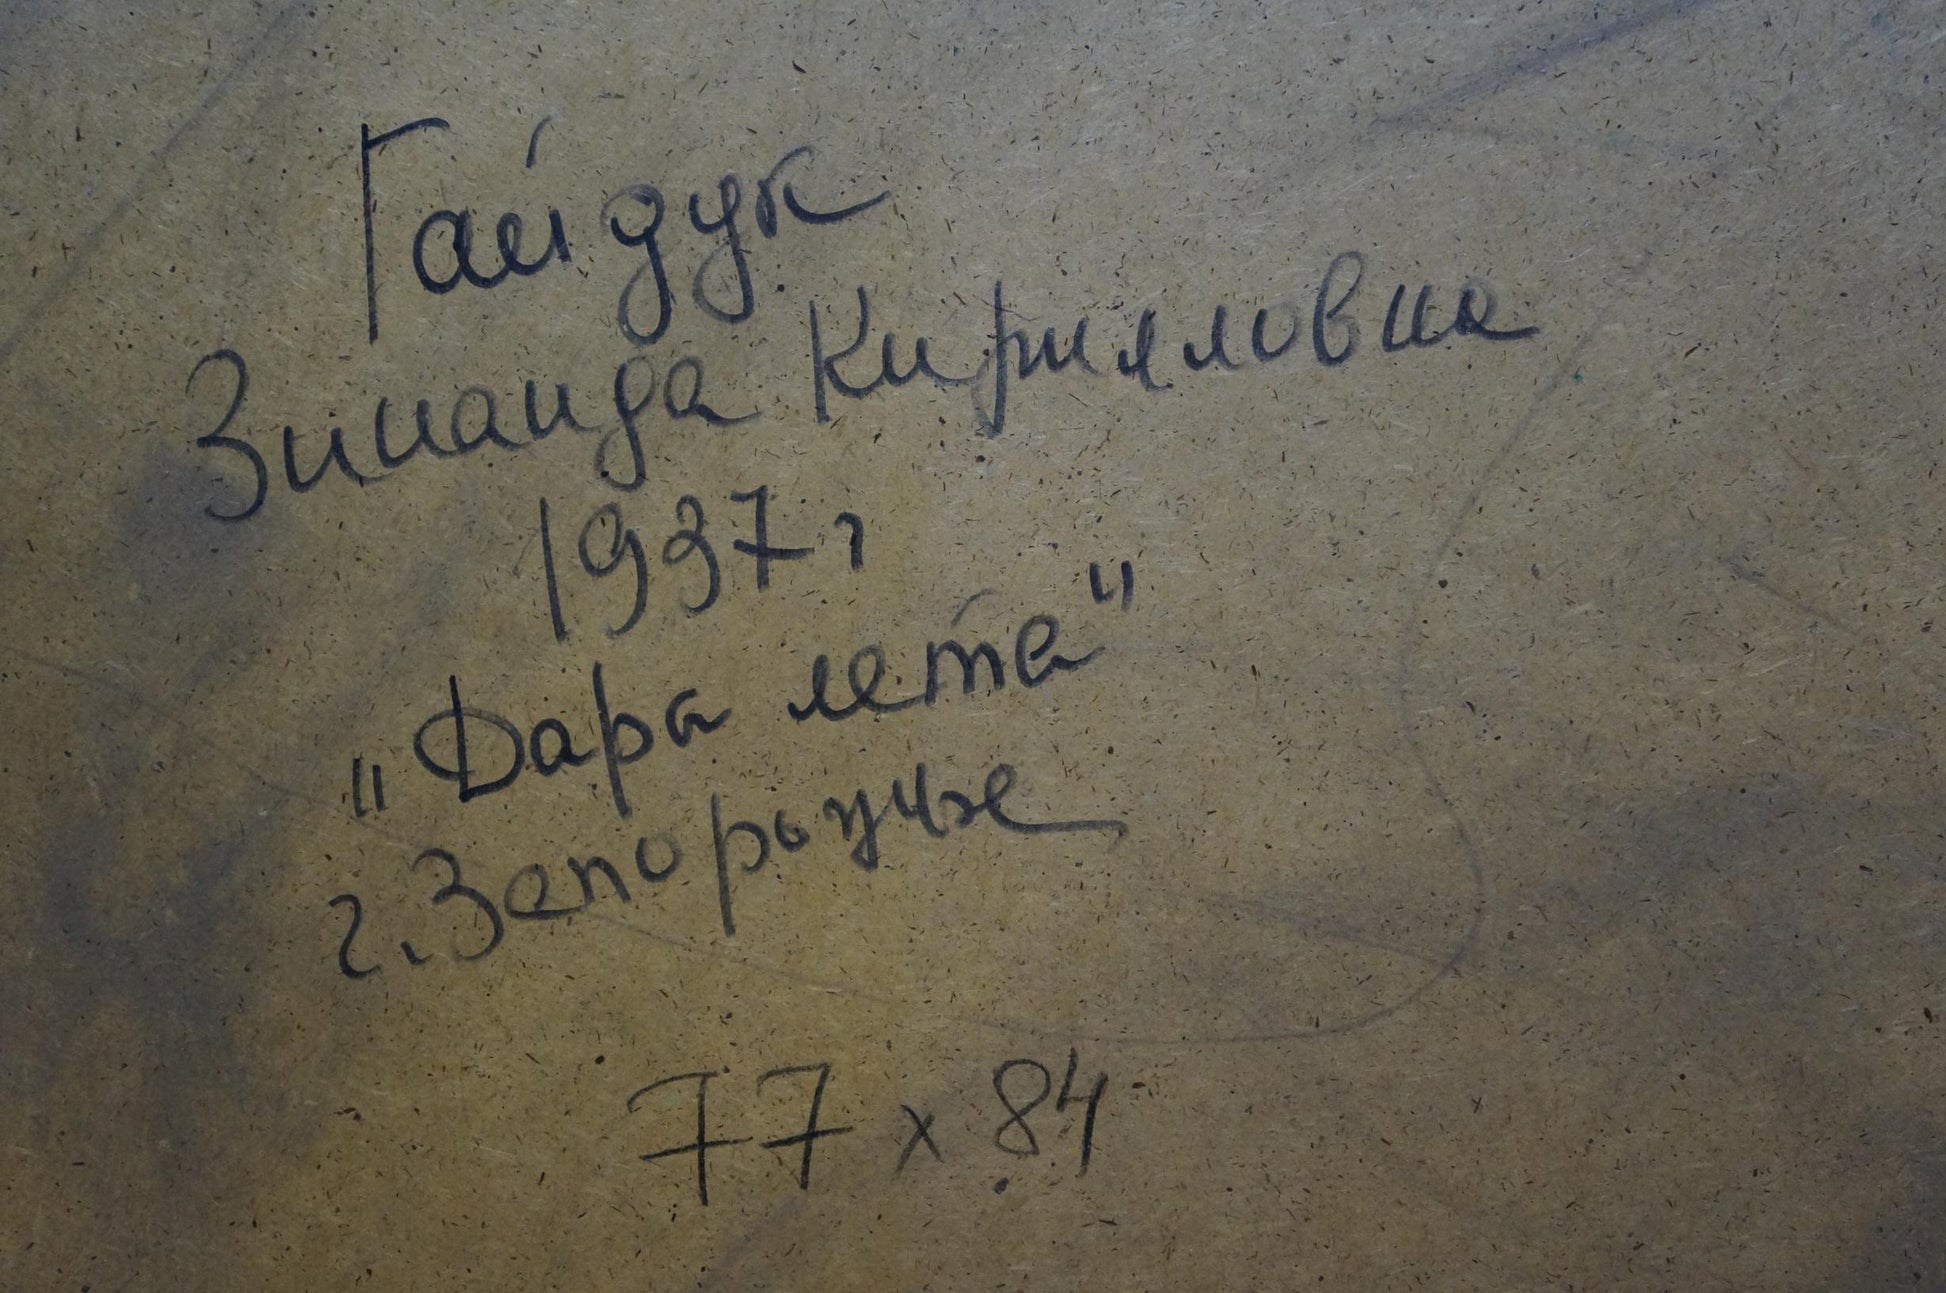 Гайдук
Зинаида Кирилловна
1937 г
"Дары лета"
г. Запорожье
77 x 84